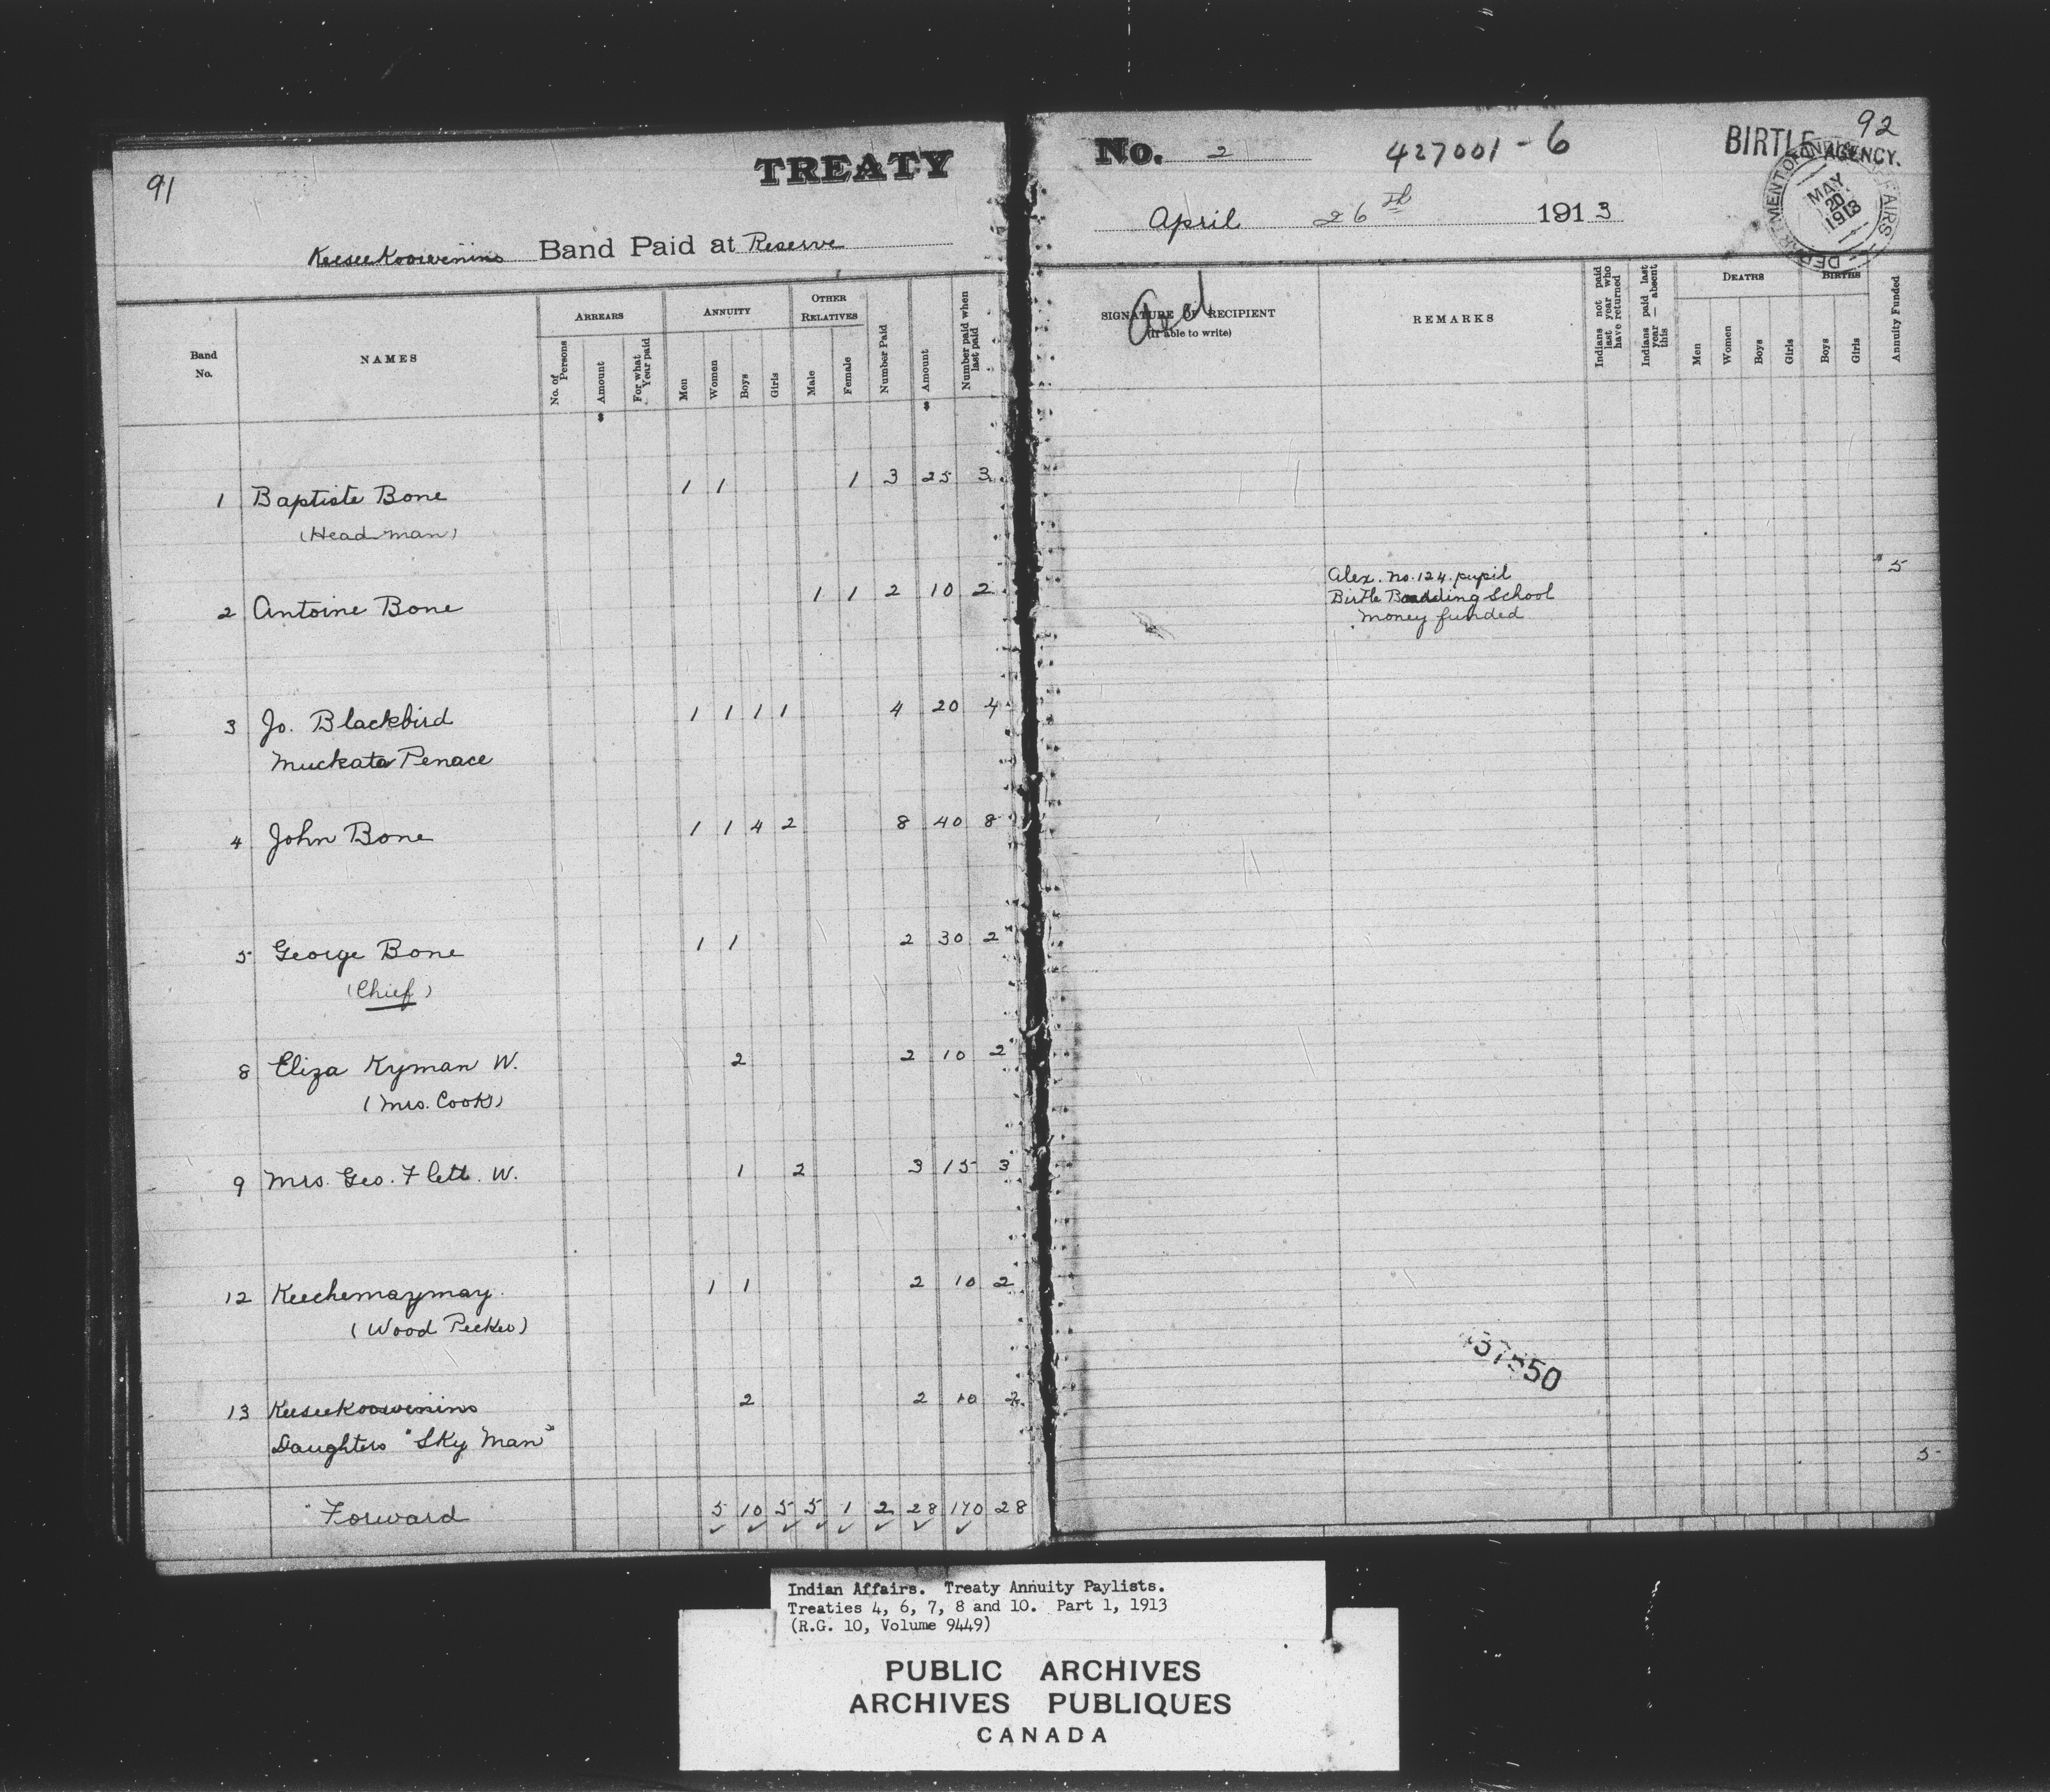 91
TREATY
KeeseeKoowenins Band Paid at Reserve
Band No. NAMES ARREARS ANNUITY OTHER RELATIVES Number Paid Amount Number paid when last paid
No. of Persons Amount For what Year paid Men Women Boys Girls Male Female
$ $
1 Baptiste Bone 1 1 1 3 25 3
(Head man)
2 Antoine Bone 1 1 2 10 2
3 Jo. Blackbird 1 1 1 1 4 20 4
Muckata Penace
4 John Bone 1 1 4 2 8 40 8
5 George Bone 1 1 2 30 2
(Chief)
8 Eliza Kyman W. 2 2 10 2
(Mrs. Cook)
9 Mrs. Geo. Flett. W. 1 2 3 15 3
12 Keechemaymay 1 1 2 10 2
(Wood Pecker)
13 KeeseeKoowenins 2 2 10 2
Daughters "Sky Man"
Forward 5 10 5 5 1 2 28 170 28
No. 2 427001-6 BIRTLE AGENCY. 92
April 26th 1913
DEPARTMENT OF INDIAN AFFAIRS
MAY 20 1913
SIGNATURE OF RECIPIENT
(If able to write)
REMARKS
Indians not paid last year who have returned
Indians paid last year — absent this
DEATHS BIRTHS Annuity Funded
Men Women Boys Girls Boys Girls
Alex. no. 124. pupil 5
Birtle Boarding School
money funded
5
Indian Affairs. Treaty Annuity Paylists.
Treaties 4, 6, 7, 8 and 10. Part 1, 1913
(R.G. 10, Volume 9449)
PUBLIC ARCHIVES
ARCHIVES PUBLIQUES
CANADA